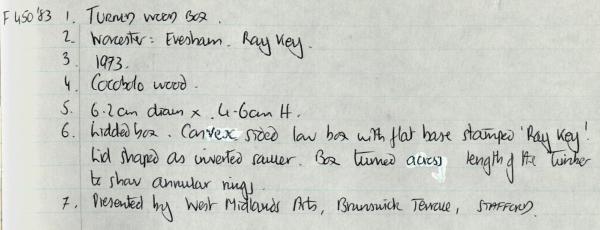 F450'83 1. TURNED WOOD BOX.
2. Worcester: Evesham. Ray Key.
3. 1973.
4. Cocobolo wood.
5. 6.2cm diam x 4.6cm H.
6. Lidded box. Convex sided low box with flat base stamped 'Ray Key'.
Lid shaped as inverted saucer. Box turned across length of the timber
to show annular rings.
7. Presented by West Midlands Arts, Brunswick Terrace, STAFFORD.